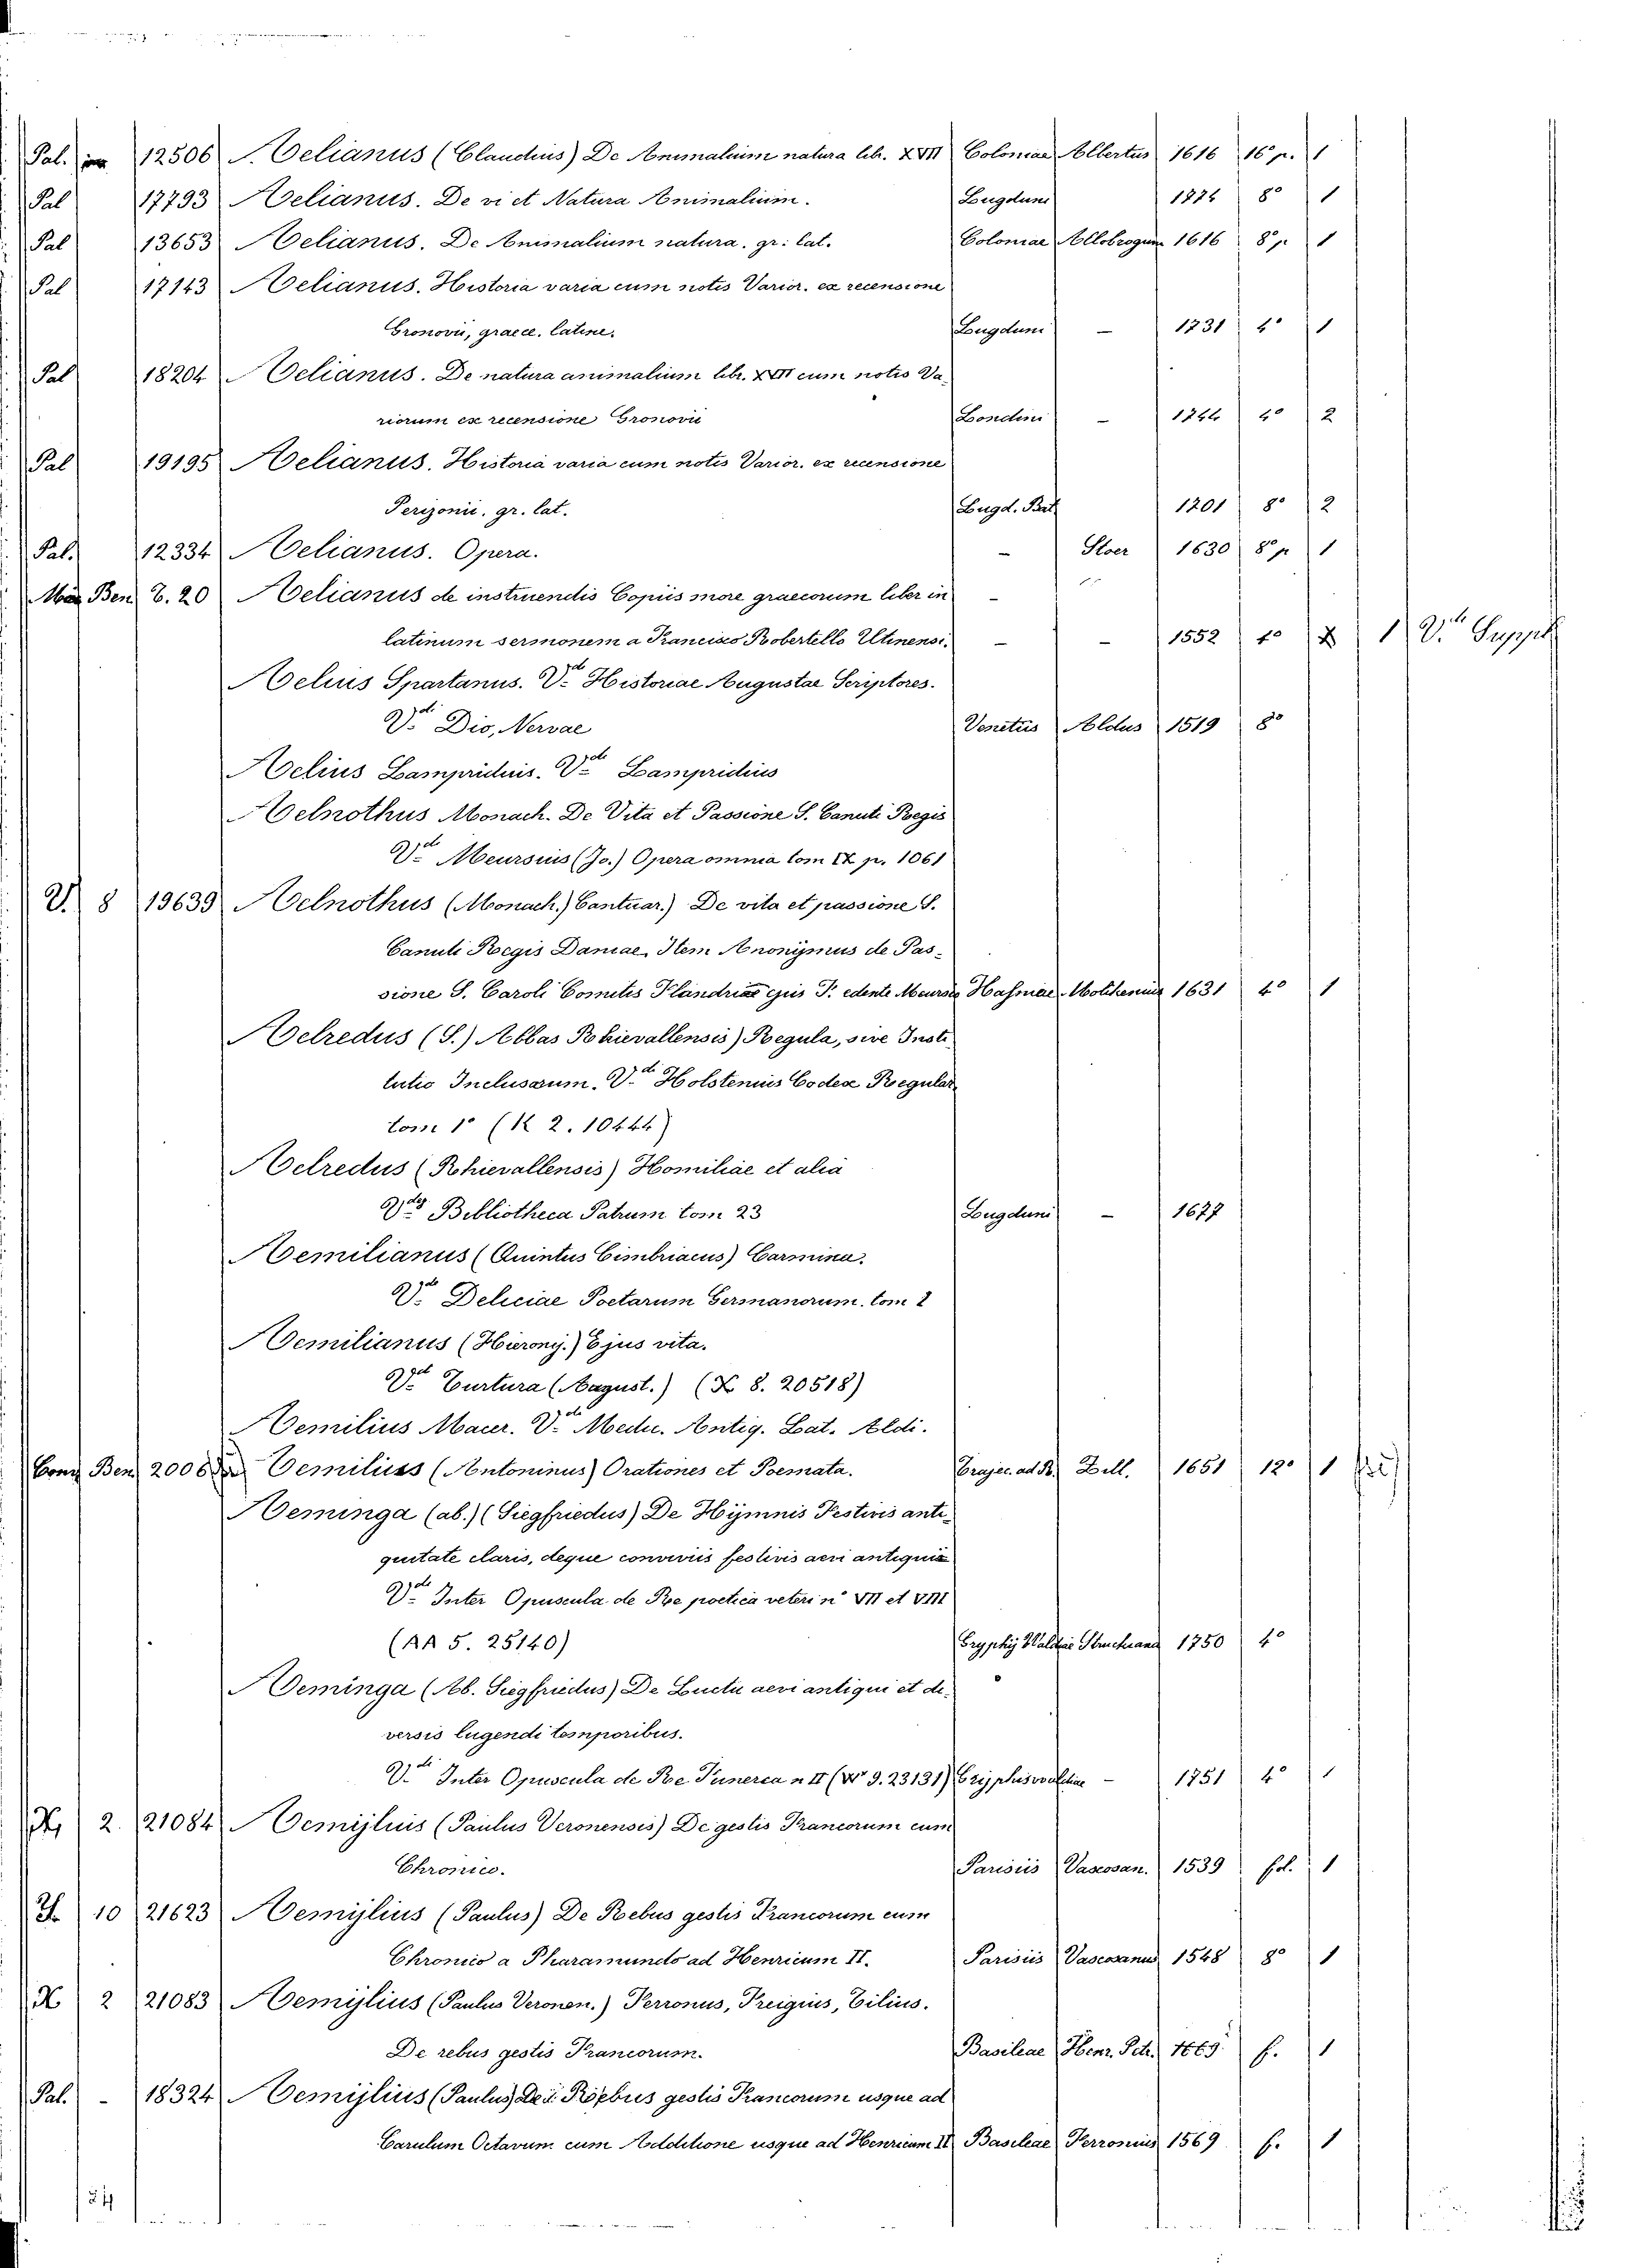 Pal. 12506 Aelianus (Claudius) De Animalium natura lib. XVII Coloniae Albertus 1616 16° p. 1
Pal 17793 Aelianus. De vi et Natura Animalium. Lugduni 8° 1
Pal 13653 Aelianus. De Animalium natura. gr: lat. Coloniae Allobrogum 1616 8° p 1
Pal 17143 Aelianus. Historia varia cum notis Varior. ex recensione
Gronovii, graece. latine. Lugduni – 1731 4° 1
Pal 18204 Aelianus. De natura animalium libr. XVII cum notis Va-
riorum ex recensione Gronovii Londini – 1744 4° 2
Pal 19195 Aelianus. Historia varia cum notis Varior. ex recensione
Perizonii. gr. lat. Lugd. Bat 1701 8° 2
Pal. 12334 Aelianus. Opera. – Stoer 1630 8° p 1
Ben 6. 20 Aelianus de instruendis Copiis more graecorum liber in –
latinum sermonem a Francisco Robertello Utinensi. – – 1552 4° 1 V.t Suppl
Aelius Spartanus. V.de Historiae Augustae Scriptores.
V.de Dio, Nervae Venetiis Aldus 1519 8°
Aelius Lampridius. V.de Lampridius
Aelnothus Monach. De Vita et Passione S. Canuti Regis
V.de Meursius (Jo.) Opera omnia tom IX p. 1061
V. 8 19639 Aelnothus (Monach.) Cantuar.) De vita et passione S.
Canuti Regis Daniae. Item Anonymus de Pas-
sione S. Caroli Comitis Flandriae ejus F. edente Meursio Hafniae Moltkenius 1631 4° 1
Aelredus (S.) Abbas Rhievallensis) Regula, sive Insti-
tutio Inclusarum. V.de Holstenius Codex Regular
tom 1° (K 2. 10444)
Aelredus (Rhievallensis) Homiliae et alia
V.des Bibliotheca Patrum tom 23 Lugduni – 1677
Aemilianus (Quintus Cimbriacus) Carmina.
V.de Deliciae Poetarum Germanorum. tom 1
Aemilianus (Hierony.) Ejus vita.
V.de Turtura (August.) (X 8. 20518)
Aemilius Macer. V.de Medic. Antiq. Lat. Aldi.
Ben 2006 Aemilius (Antoninus) Orationes et Poemata. Trajec. ad R. Zill. 1651 12° 1
Aeminga (ab.) (Siegfriedus) De Hymnis Festivis anti-
quitate claris, deque conviviis festivis aevi antiquis
V.de Inter Opuscula de Re poetica veteri n° VII et VIII
(AA 5. 25140) Gryphiswaldiae Struckiana 1750 4°
Aeminga (Ab. Siegfriedus) De Luctu aevi antiqui et di-
versis lugendi temporibus.
V.de Inter Opuscula de Re Funerea n II (W 9. 23131) Gryphiswaldiae – 1751 4° 1
X 2. 21084 Aemijlius (Paulus Veronensis) De gestis Francorum cum
Chronico. Parisiis Vascosan. 1539 fol. 1
10 21623 Aemijlius (Paulus) De Rebus gestis Francorum cum
Chronico a Pharamundo ad Henricum II. Parisiis Vascosanus 1548 8° 1
X 2 21083 Aemijlius (Paulus Veronen.) Ferronus, Freigius, Gilius.
De rebus gestis Francorum. Basileae Henr. Petr. f. 1
Pal. – 18324 Aemijlius (Paulus) De Rebus gestis Francorum usque ad
Carulum Octavum cum Additione usque ad Henricum II Basileae Ferronius 1569 f. 1
24